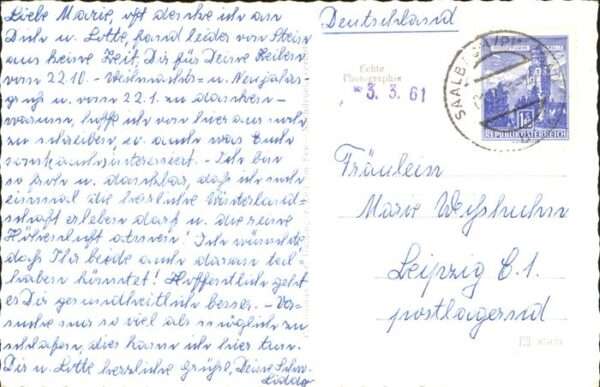 Liebe Marie, oft denke ich an
Dich u. Lotte, fand leider von Stein
aus keine Zeit, Dir für Deine Zeilen
vom 22.10. - Weihnachts- u. Neujahrs-
gruß u. vom 22.1. zu danken -
warum, hoffe ich von hier aus
zu schreiben, was auch Euch
interessiert. - Ich bin
so froh u. dankbar, daß ich noch
einmal die herrliche Winterland=
schaft erleben darf u. die reine
Höhenluft atmen! Ich wünschte,
daß Ihr beide auch daran teil
haben könntet! Hoffentlich geht
es Dir gesundheitlich besser. - Ver-
suche nur so viel als möglich zu
schlafen, dies kann ich hier tun.
Dir u. Lotte herzliche Grüße, Deine
Deutschland
Echte
Photographie
3. 3. 61
SAALBACH
1.50
REPUBLIK ÖSTERREICH
Fräulein
Marie
Leipzig C.1.
postlagernd